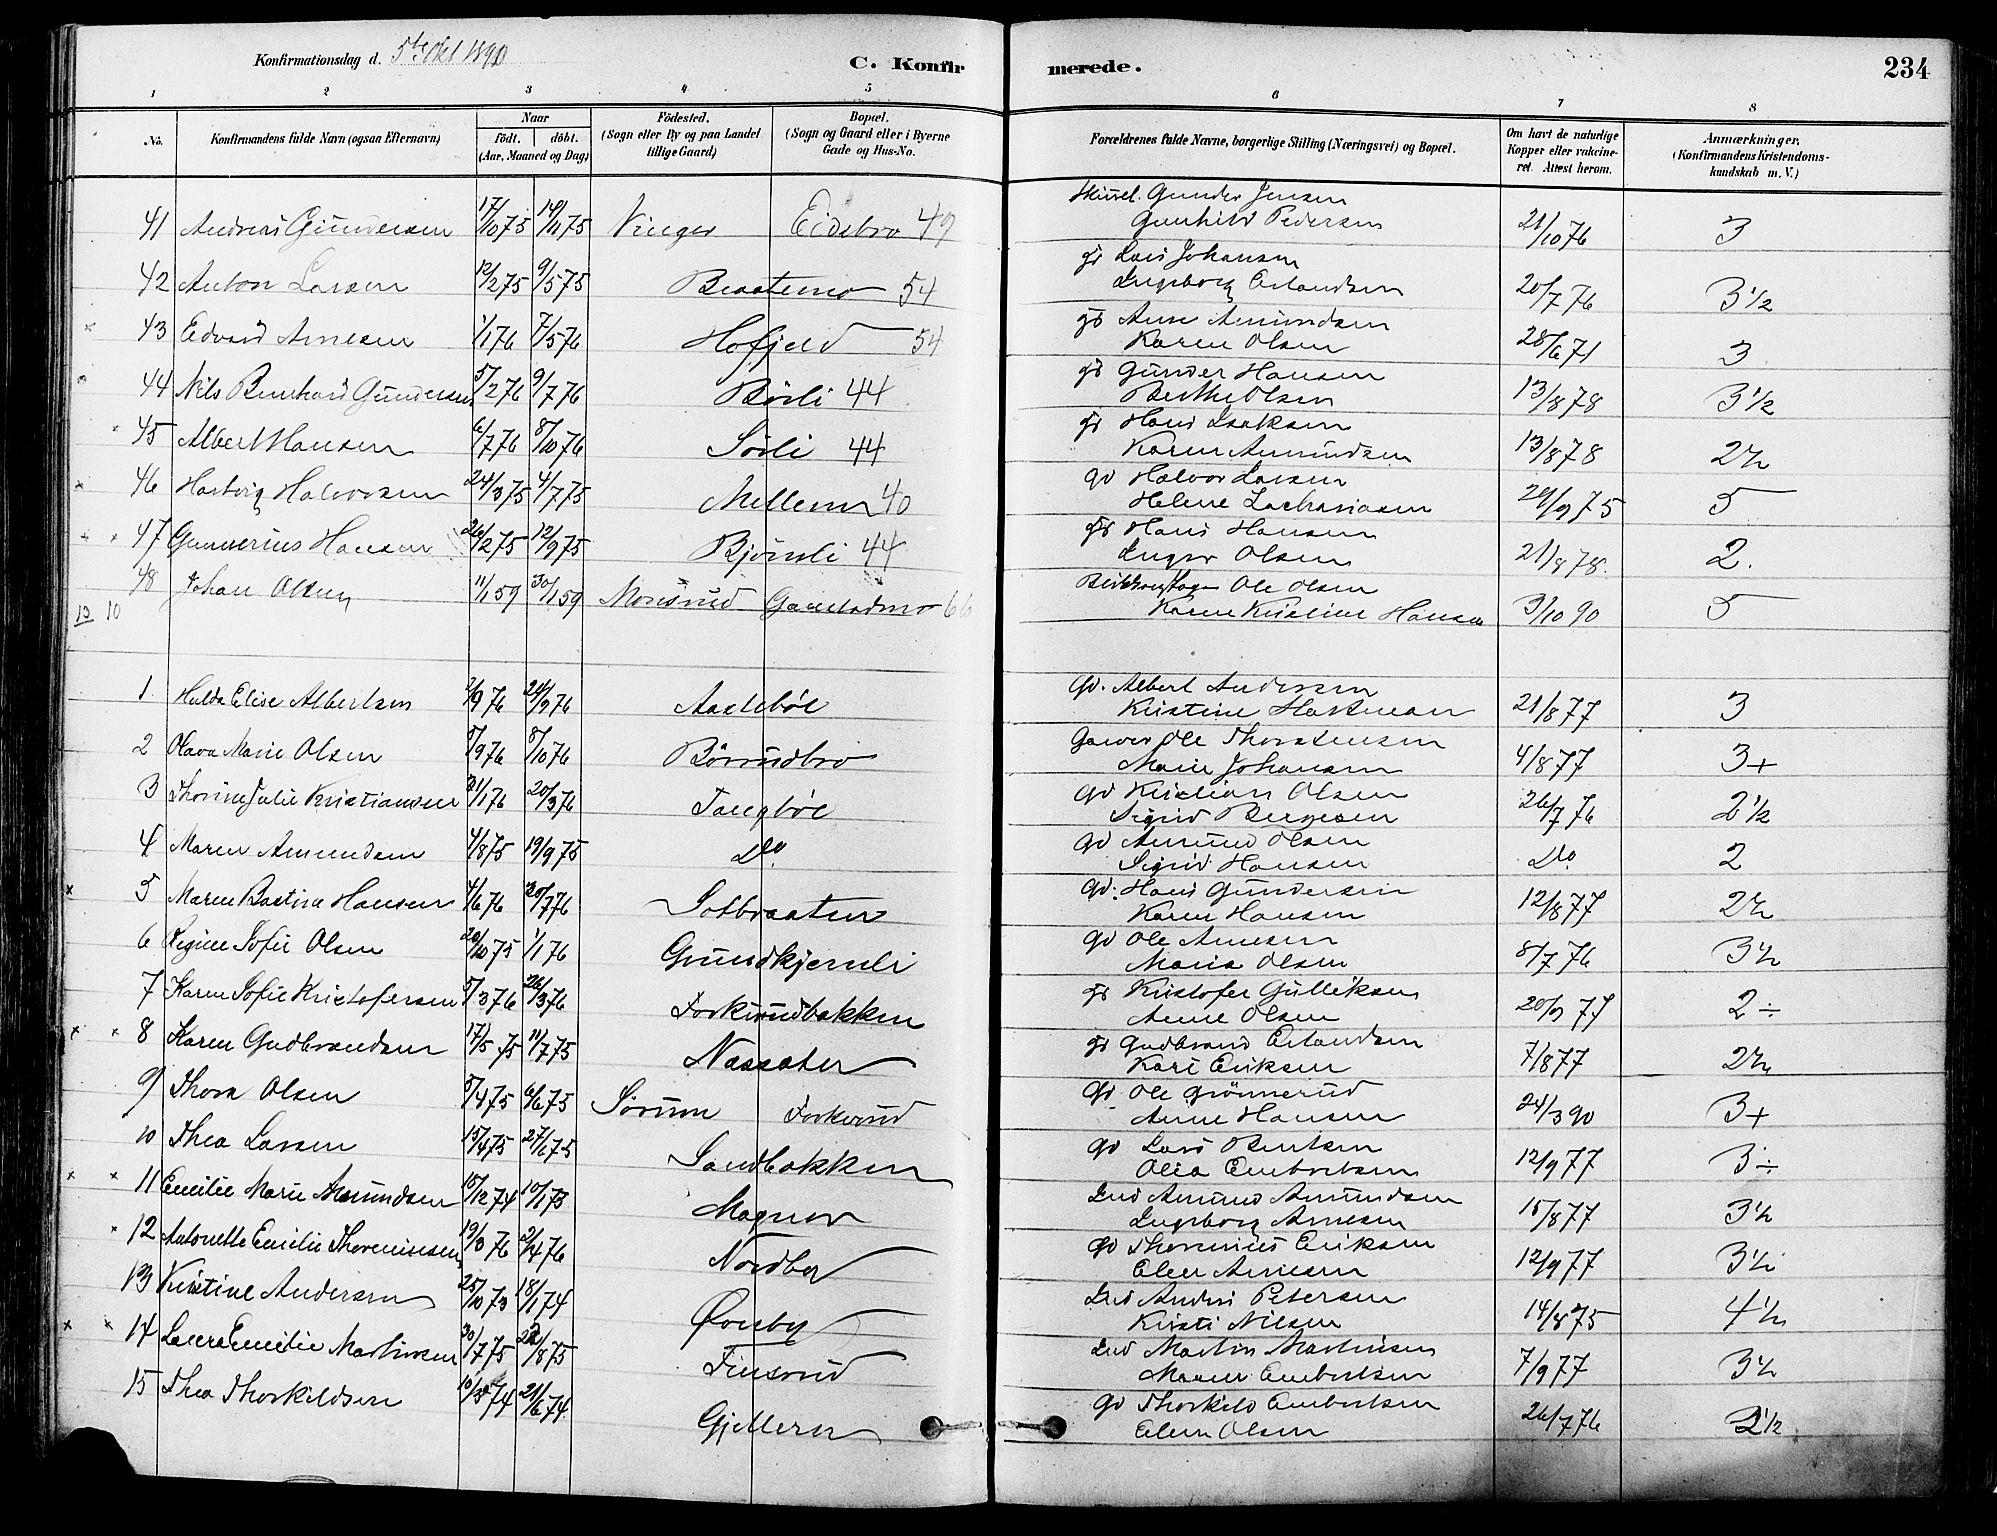 Konfirmationsdag d. 5te Okt 1890
C. Konfirmerede.
234
1 2 3 4 5 6 7 8
No.
Konfirmandens fulde Navn (ogsaa Efternavn)
Naar
födt. döbt.
(Aar, Maaned og Dag)
Födested.
(Sogn eller By og paa Landet
tillige Gaard)
Bopæl.
(Sogn og Gaard eller i Byerne
Gade og Hus-No.
Forældrenes fulde Navne, borgerlige Stilling (Næringsvei) og Bopæl.
Om havt de naturlige
Kopper eller vakcine-
ret. Attest herom.
Anmærkninger.
(Konfirmandens Kristendoms-
kundskab m. V.)
41 Andreas Gundersen 17/10 75 14/11 75 Vinger Eidsbro 49 Gunder Jensen
Gunhild Pedersen 21/10 76 3
42 Anton Larsen 12/2 75 9/5 75 Braatemo 54 gs Lars Johansen
Ingeborg Erlandsen 20/7 76 3 1/2
43 Edvard Arnesen 1/1 76 7/5 76 Hofjeld 54 gs Arne Amundsen
Karen Olsen 28/6 71 3
44 Nils Bernhard Gundersen 5/2 76 9/7 76 Börli 44 gs Gunder Hansen
Berthe Olsen 13/8 78 3 1/2
45 Albert Hansen 6/7 76 8/10 76 Sörli 44 gs Hans Isaksen
Karen Amundsen 13/8 78 2 1/2
46 Hartvig Halvorsen 24/3 75 4/7 75 Mellem 40 gd Halvor Larsen
Helene Zachariasen 29/9 75 5
47 Gunnerius Hansen 26/2 75 12/9 75 Bjönli 44 gs Hans Hansen
Inger Olsen 21/8 78. 2.
48 Johan Olsen 11/1 59 30/1 59 Morsrud Gaustadmo 66 Ole Olsen
13 10 Karen Kristine Hansen 3/10 90 5
1 Hulda Elise Albertsen 2/9 76 24/9 76 Aastebøl gd. Albert Andersen
Kristine Hartman 21/8 77 3
2 Olava Marie Olsen 5/9 76 8/10 76 Børrudbro Ole Thorstensen
Marie Johansen 4/8 77 3+
3 Thorine Julie Kristiansen 31/1 76 20/3 76 Tangbøl gd Kristian Olsen
Sigrid Børgesen 26/7 76 2 1/2
4 Maren Amundsen 4/8 75 19/9 75 Do. gd Amund Olsen
Sigrid Hansen Do. 2
5 Maren Bastine Hansen 4/6 76 30/7 76 Sotbraaten gd. Hans Gundersen
Karen Hansen 12/8 77 2 1/2
6 Regine Sofie Olsen 20/10 75 1/1 76 Grundkjernli gd Ole Arnesen
Maria Olsen 8/7 76 3 1/2
7 Karen Sofie Kristofersen 5/3 76 26/3 76 Forkerudbakken gs Kristofer Gulliksen
Anne Olsen 20/9 77 2÷
8 Karen Gudbrandsen 17/5 75 11/7 75 Nassater gs Gudbrand Erlandsen
Kari Eriksen 7/8 77 2 1/2
9 Thora Olsen 5/4 75 6/6 75 Sørum Forkerud gd Ole Grönnerud
Anne Hansen 24/3 90 3+
10 Thea Larsen Sandbakken gd Lars Berntsen
Olia Embretsen 12/9 77 3÷
11 Emilie Marie Amundsen 15/12 74 Magnor Ind Amund Amundsen
Ingeborg Arnesen 15/8 77 3 1/2
12 Antonette Emilie Thoreniusen 19/3 76 2/4 76 Nordby gd Thorenius Eriksen
Elen Arnesen 12/9 77 3 1/2
13 Kristine Andersen 25/10 73 18/1 74 Øvrsby Ind Anders Petersen
Kirsti Nilsen 14/8 75 4 1/2
14 Laura Emilie Martinsen 30/7 75 22/8 75 Finsrud Ind Martin Martinsen
Maren Embretsen 7/9 77 3 1/2
15 Thea Thorkildsen 10/3 74 21/6 74. Gjellern gd Thorkild Embretsen
Elen Olsen 26/7 76 2 1/2